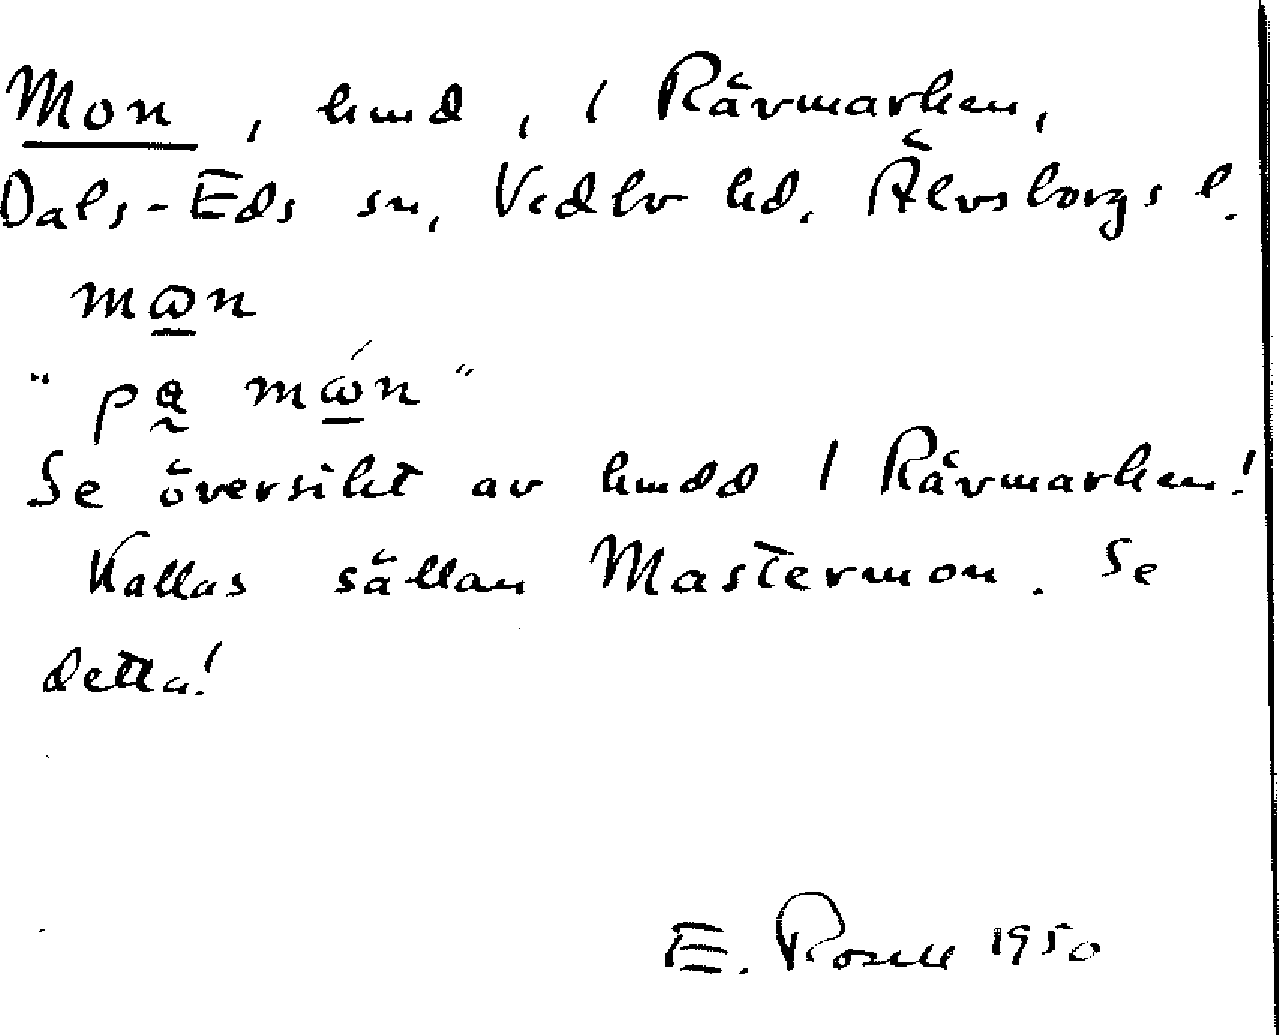 Mon, hmd, i Rävmarken,
Dals-Eds sn, Vedbo hd, Älvsborgs l.
mωn
"pa mώn"
Se översikt av hmdd i Rävmarken!
Kallas sällan Mastermon. Se
detta!
E. Rosell 1950